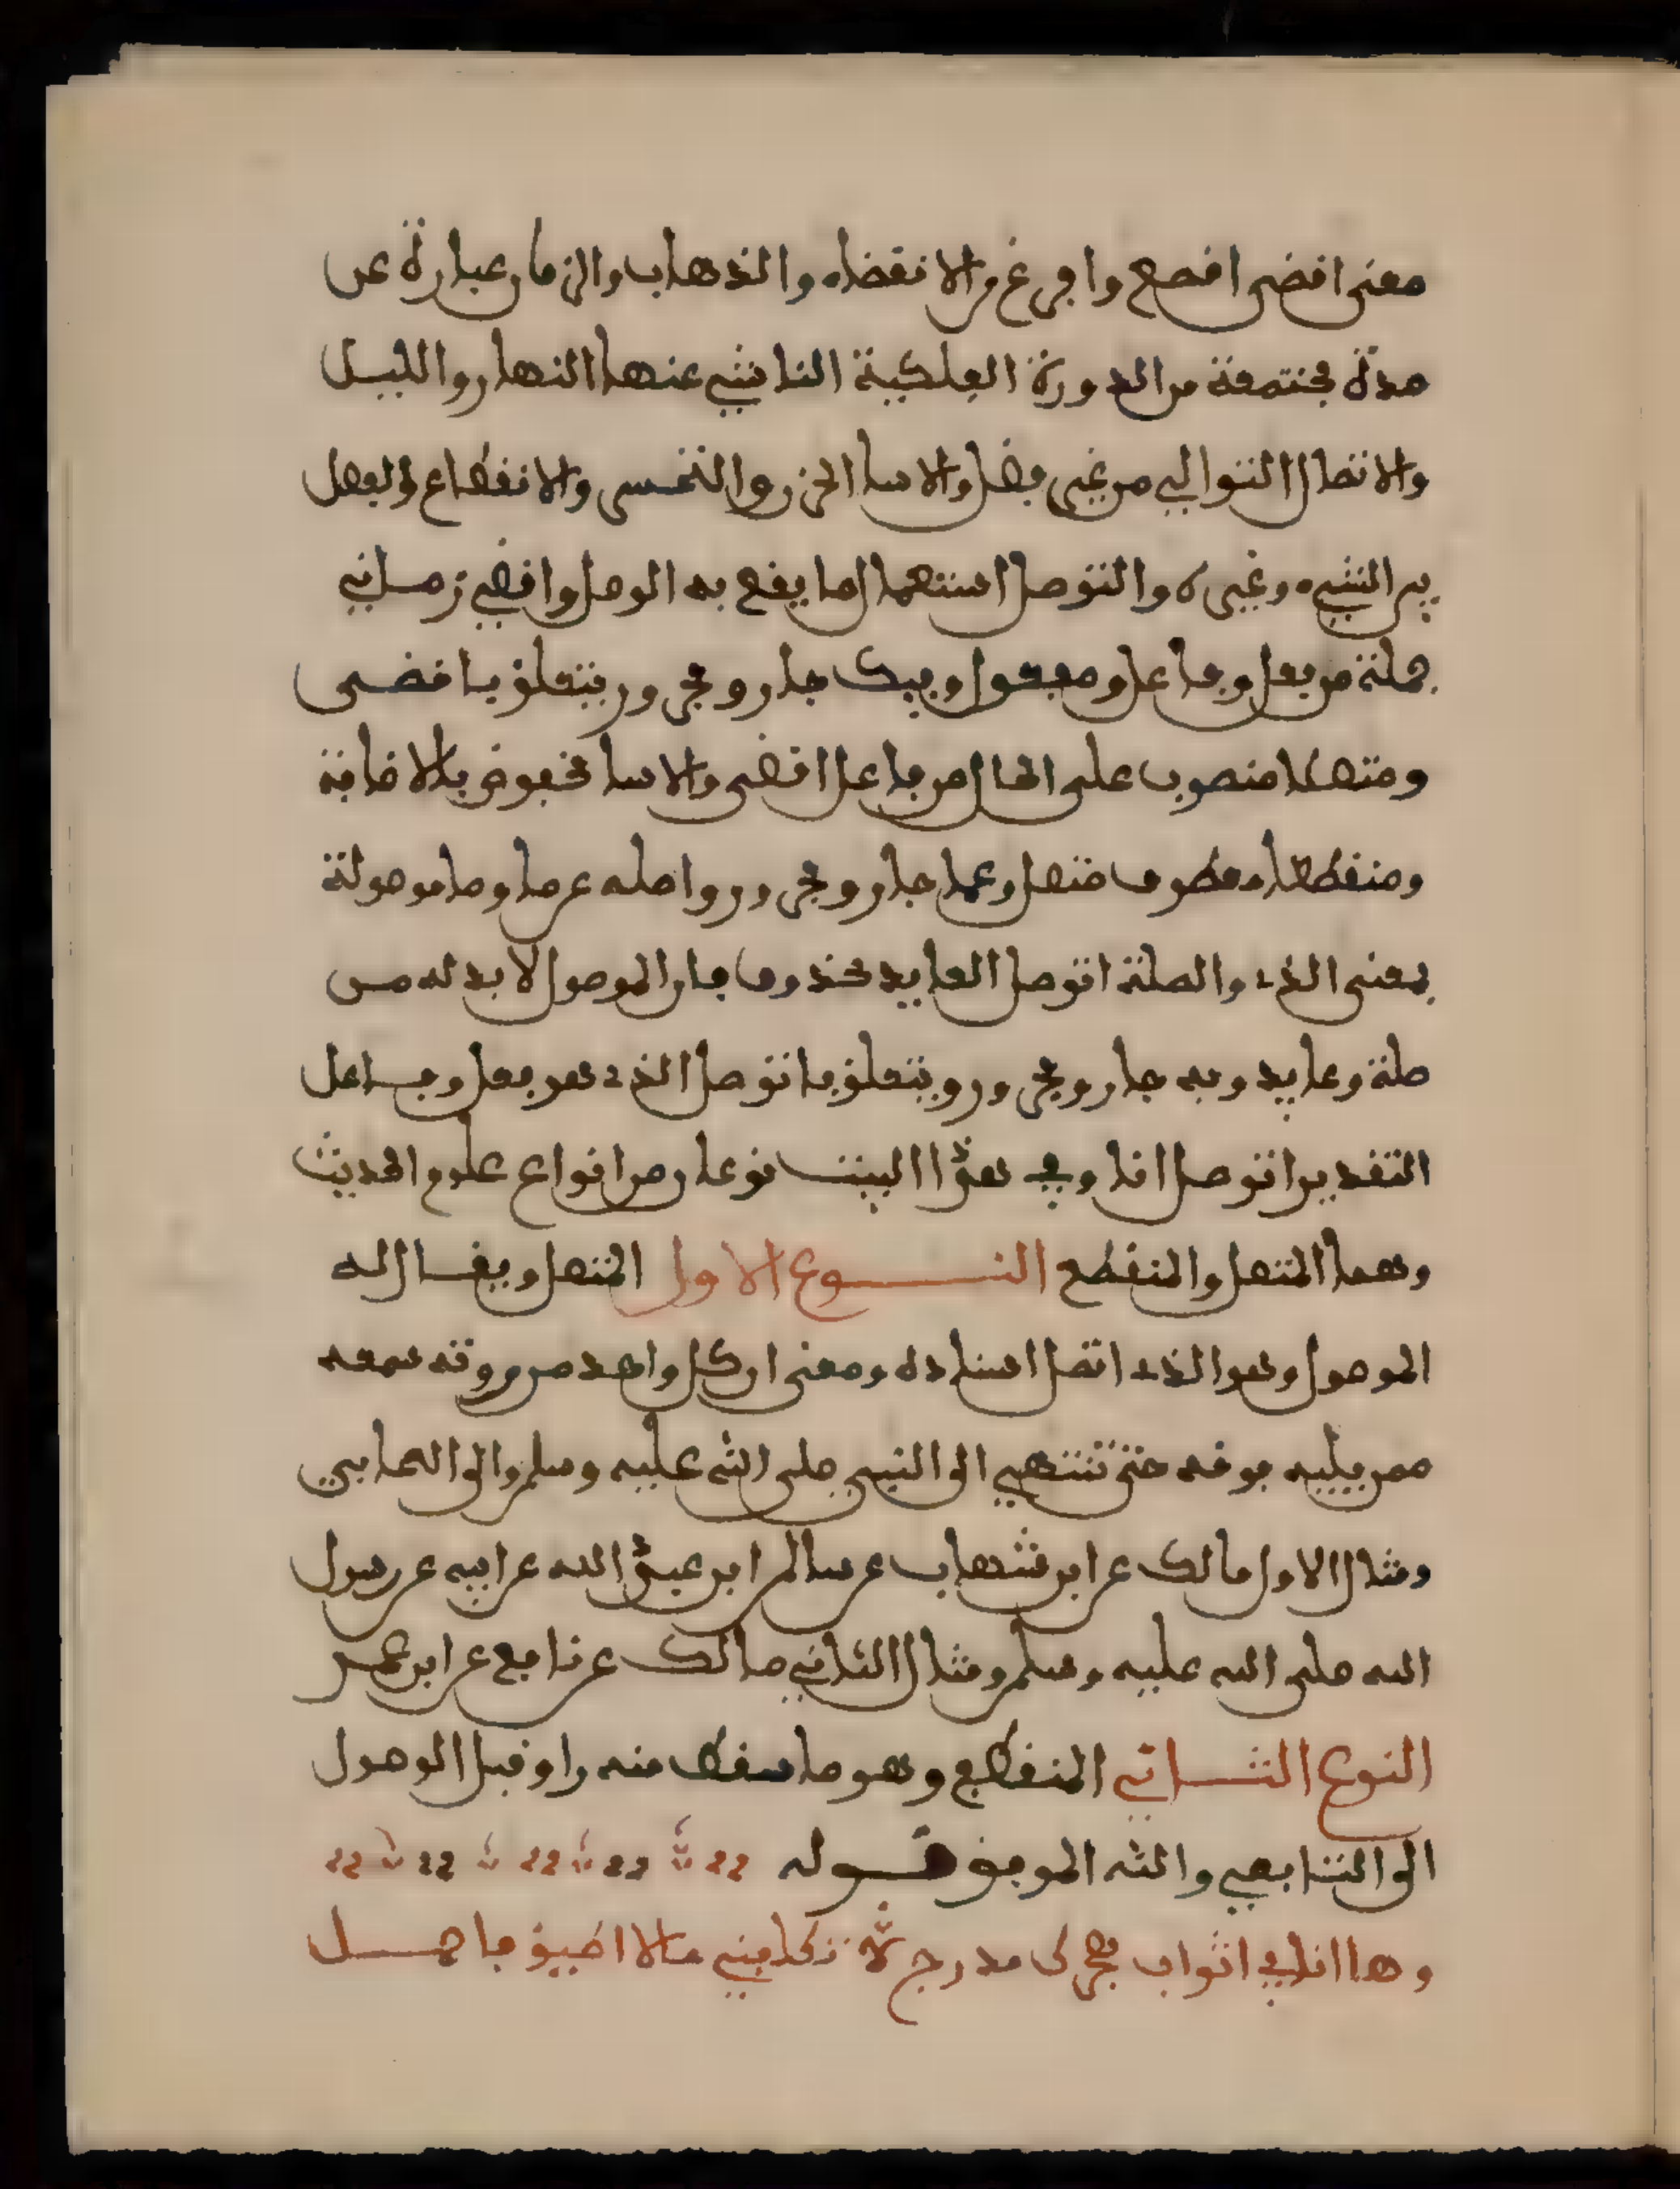 معنى اقضى اقطع وافرغ والانقضاء والذهاب والزمان عبارة عن
مدة مجتمعة من الدورة الفلكية الناشي عنها النهار والليل
والاتصال التوالي من غير فصل والاسا الحزن والتحسر والانقطاع والفصل
بين الشيء وغيره والتوصل استعمال ما يقع به الوصل واقضي زماني
جملة من فعل وفاعل ومفعول وفيك جار ومجرور يتعلق باقضى
ومتصلا منصوب على الحال من فاعل اقضى والاسا مخفوض بالاضافة
ومنقطعا معطوف متصل وعما جار ومجرور واصله عن ما وما موصولة
بمعنى الذي والصلة اتوصل العايد محذوف فان الموصول لا بد له من
صلة وعايد وبه جار ومجرور ويتعلق باتوصل الذي هو فعل وفاعل
التقدير اتوصل انا وفي هذا البيت نوعان من انواع علوم الحديث
وهما المتصل والمنقطع النوع الاول المتصل ويقال له
الموصول وهو الذي اتصل اسناده ومعنى ان كل واحد من روته سمعه
ممن يليه فوقه حتى تنتهي الى النبي صلى الله عليه وسلم والى الصحابي
ومثال الاول مالك عن ابن شهاب عن سالم ابن عبد الله عن ابيه عن رسول
الله صلى الله عليه وسلم ومثال الثاني مالك عن نافع عن ابن عمر
النوع الثاني المنقطع وهو ما سقط منه راو قبل الوصول
الى التابعي والله الموفق قوله
وها انا في اثواب هجرك مدرج تكلفني ما لا اطيق فاحمل